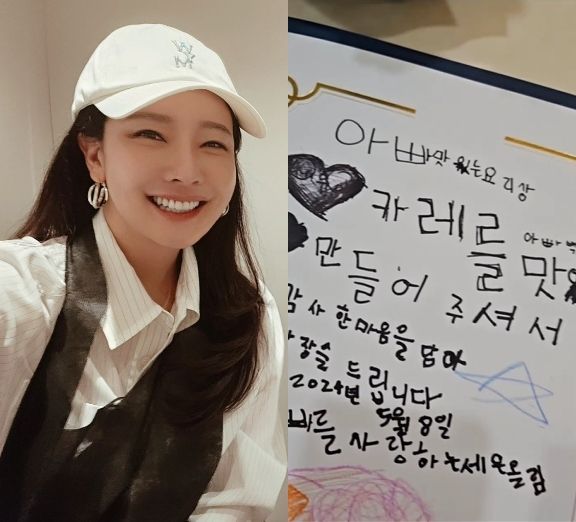 아빠맛있는요리상
카레를 맛
아빠
만들어 주셔서
감사한마음을 담아
장을 드립니다
2024년 5월 8일
빠를 사랑하는세은올림